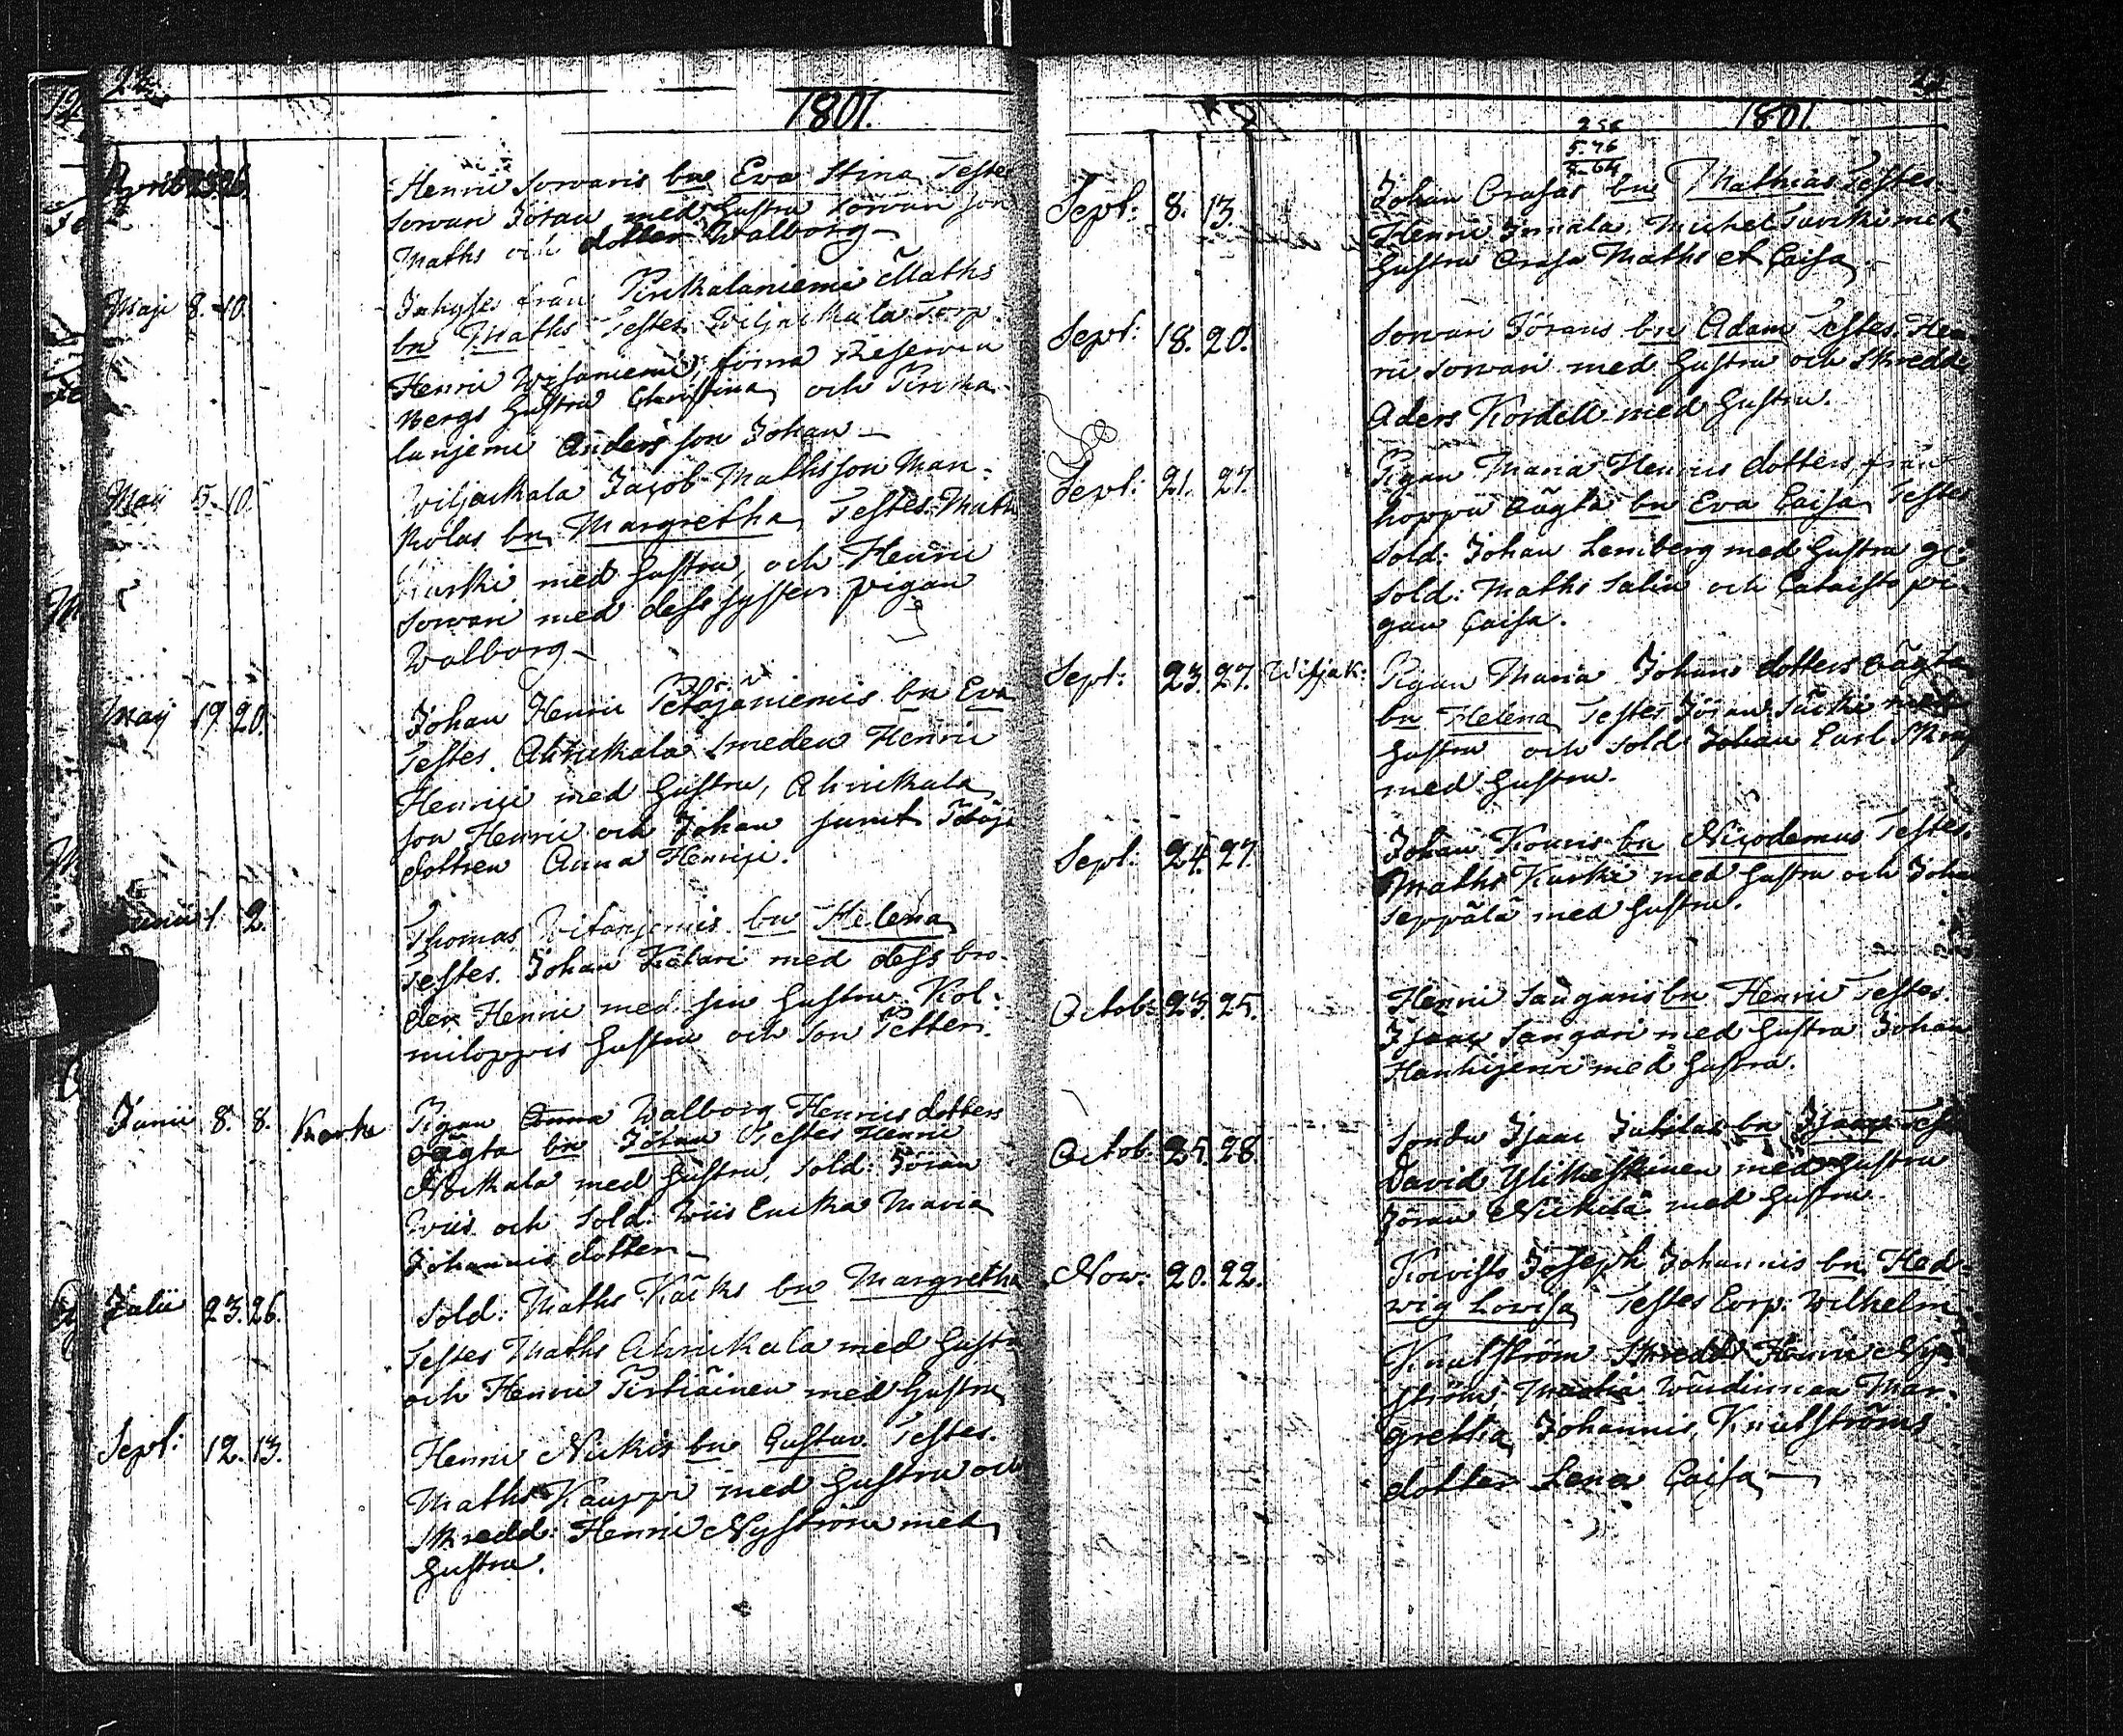 22
1801.
April 25. 26. Henric Sorvaris bn Eva Stina Testes
Sorvari Jöran med hustru Sorvari son
Maths och dotter Walborg
Maji 8. 10. Inhyses från Pirckalaniemi Maths
bn Maths Testes Wiljackala Torp:
Henric Wesaniemi, förra
bergs hustru Christina och Pircka
laniemi Anders son Johan
Maji 5. 10. Wiljackala Jacob Mathsson Man-
bn Margretha Testes Maths
Kurki med hustru, och Henric
Sorvari med dess syster pigan
Walborg
Maij 19 20. Johan Henric Petäjäniemis bn Eva
Testes. Ahrikala smeden Henric
Henrici med hustru, Ahrikala
son Henric och Johan samt Petäjä
dottren Anna Henrici.
Junii 1. 2. Thomas Witaniemis bn Helena
Testes. Johan Ketari med dess bro-
der Henric med sin hustru Kol-
miloppis hustru och son Petter.
Junii 8. 8. Pigan Anna Walborg Henrics dotters
oägta bn Jöran Testes Henric
Nickala med hustru, Sold: Jöran
Wiis och Sold: Wiis Encka Maria
Johannis dotter
Julii 23. 26. Sold: Maths Käcks bn Margretha
Testes Maths Ahrikala med hustru
och Henric Pirtiäinen med hustru
Sept: 12. 13. Henric Nickis bn Gustav Testes.
Maths Kauppi med hustru och
Skredd: Henric Nyström med
hustru.
1801.
Sept: 8. 13. Johan Orasas bn Mathias Testes.
Henric Innala, Michel Turcki med
hustru Orasa Maths et Caisa.
Sept: 18. 20. Sorvari Jörans bn Adam Testes Hen
ric Sorvari med hustru och Skredd:
Aders Kordell med hustru.
Sept: 21. 27. Pigan Maria Henrics dotters från
hoppu oägta bn Eva Caisa Testes
Sold: Johan Lemberg med hustru
Sold: Maths Salin och pi-
gan Caisa.
Sept: 23. 27. Wiljak: Pigan Maria Johans dotters oägta
bn Helena Testes Jöran med
hustru och Sold: Johan Carl
med hustru.
Sept: 24. 27. Johan Kouris bn Nicodemus Testes.
Maths Kurki med hustru och Johan
Seppälä med hustru.
Octob: 23. 25. Henric Saugaris bn Henric Testes.
Isaac Saugari med hustru Johan
Hanhijervi med hustru.
Octob: 25. 28. Isaac bn Isaac Testes
David Ylikeskinen med hustru
Jöran Nickilä med hustru.
Nov: 20. 22. Kovisto Joseph Johannis bn Hed-
wig Lovisa Testes Corp: Wilhelm
Knutström Skredd: Henric Ny-
ström, Wärdinnan Mar-
gretha Johannis, Knutströms
dotter Lena Caisa